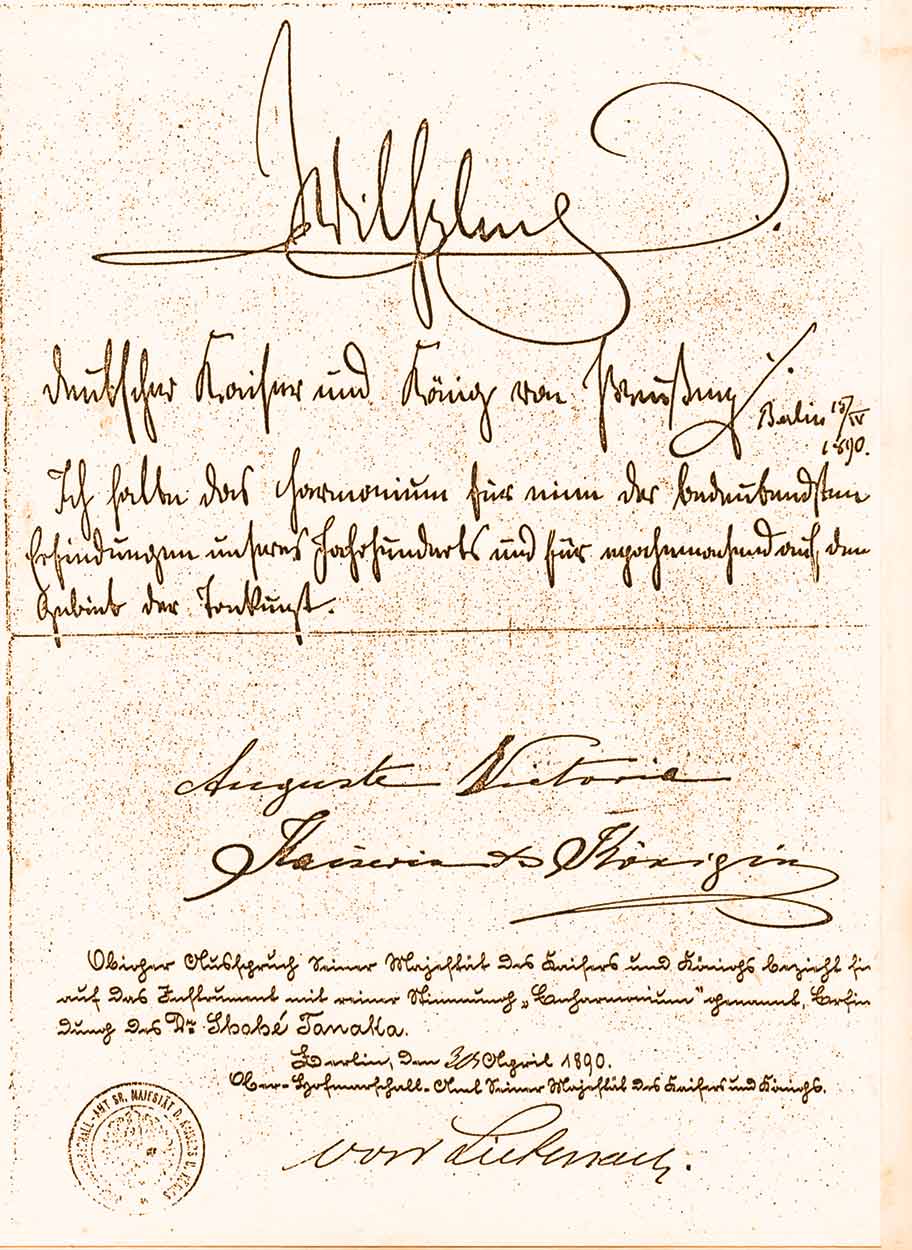 Wilhelm
deutscher Kaiser und König von Preußen
Berlin 15/IV
1890.
Ich halte das Harmonium für eine der bedeutendsten
Erfindungen unseres Jahrhunderts und für epochemachend auf dem
Gebiete der Tonkunst.
Auguste Victoria
Kaiserin & Königin
Obiger Ausspruch Seiner Majestät des Kaisers und Königs bezieht si
auf das Instrument mit reiner Stimmung „Enharmonium" genannt, Erfin
dung des Dr Shohé Tanaka.
Berlin, den 30 April 1890.
Ober-Hofmarschall-Amt Seiner Majestät des Kaisers und Königs.
von Liebenau.
SCHALL-AMT SR. MAJESTÄT D. KAISERS U. KÖNIGS